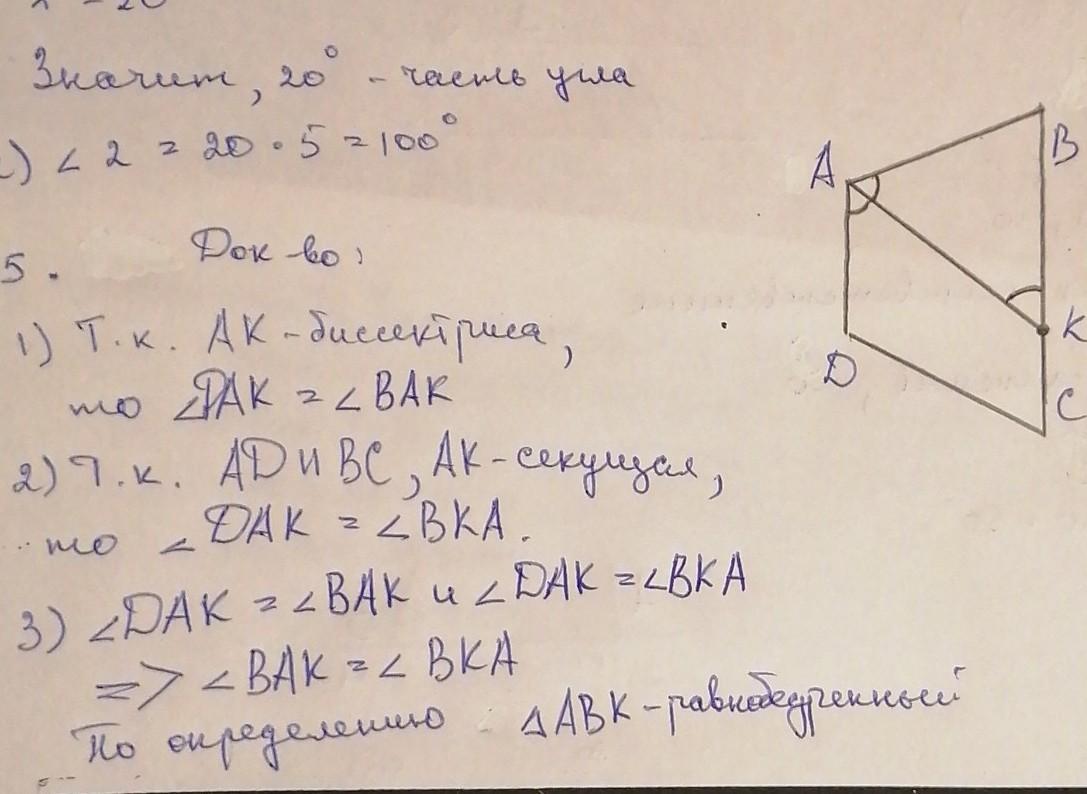 Значит, 20° - часть угла
) ∠ 2 = 20 · 5 = 100°
5. Док-во:
1) Т.к. AK - биссектриса,
то ∠DAK = ∠BAK
2) Т.к. AD и BC, AK - секущая,
то ∠DAK = ∠BKA.
3) ∠DAK = ∠BAK и ∠DAK = ∠BKA
=> ∠BAK = ∠BKA
По определению △ABK - равнобедренный
A
B
K
D
C